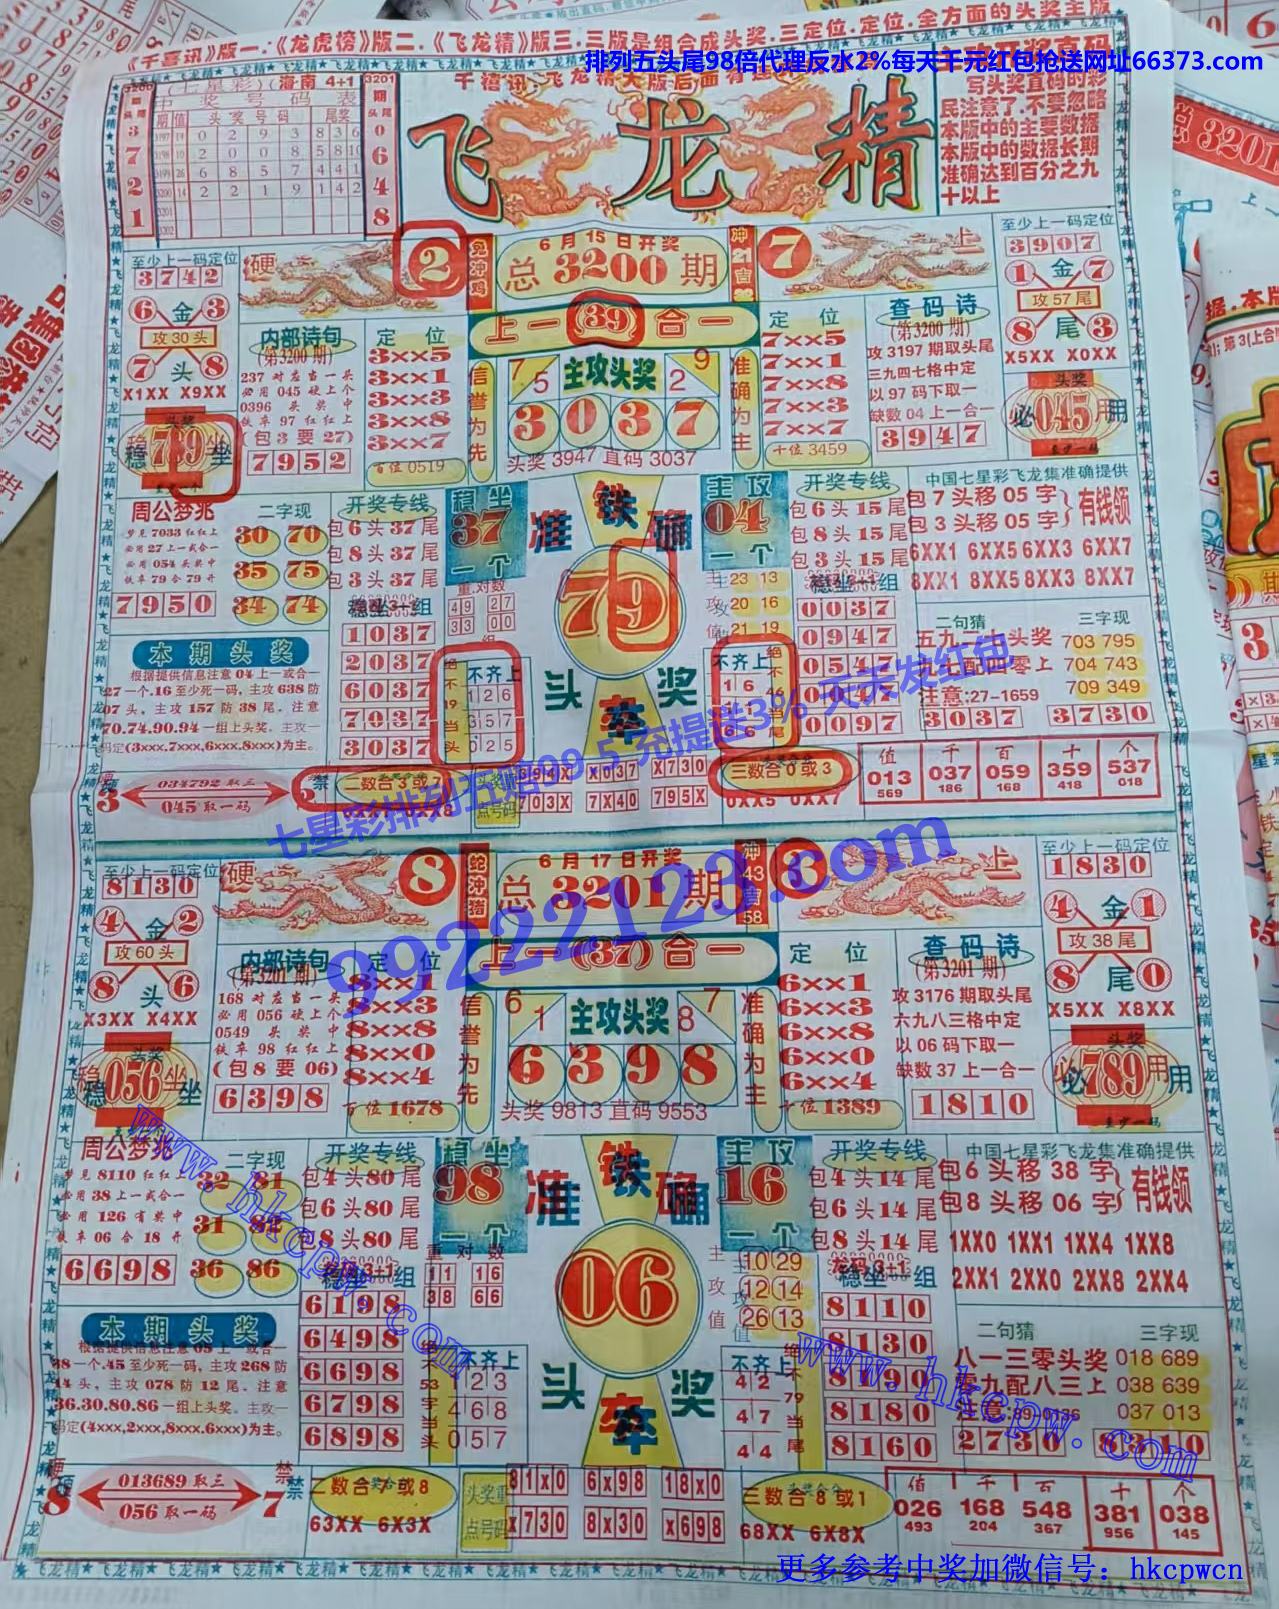 《千喜讯》版一.《龙虎榜》版二.《飞龙精》版三.三版是组合成头奖.三定位.定位.全方面的头奖主版
排列五头尾98倍代理反水2%每天千元红包抢送网址66373.com
飞龙精
写头奖直码的彩
民注意了.不要忽略
本版中的主要数据
本版中的数据长期
准确达到百分之九
十以上
(七星彩)(海南4+1)
中奖号码表
3200
3 7 2 1
3201
0 6 4 8
至少上一码定位
3742
6 金 3
攻30头
7 头 8
X1XX X9XX
硬 2
兔冲鸡
6月15日开奖
总3200期
冲21吉
7 上
至少上一码定位
3907
1 金 7
攻57尾
8 尾 3
X5XX X0XX
上一(39)合一
内部诗句
(第3200期)
237 对应当一头
必用 045 硬上个
0396 头奖中
铁车 97 红红上
(包3要27)
7952
定位
3××5
3××1
3××3
3××8
3××7
百位0519
信誉为先
主攻头奖
7 5 2 9
3037
头奖3947直码3037
准确为主
定位
7××5
7××1
7××8
7××3
7××7
十位3459
查码诗
(第3200期)
攻3197期取头尾
三九四七格中定
以97码下取一
缺数04上一合一
3947
头奖
稳789坐
头奖
必045用
周公梦兆
梦见7033红红上
必用27上一或合一
必用054头奖中
铁车79合79开
7950
二字现
30 70
35 75
34 74
开奖专线
包6头37尾
包8头37尾
包3头37尾
稳坐3+1组
1037
2037
6037
7037
3037
稳坐
37
一个
重对数
49 27
33 00
准铁确
79
头奖
主攻
04
一个
主攻值
23 13
20 16
21 19
开奖专线
包6头15尾
包3头15尾
包8头15尾
稳坐3+1组
0037
0947
0547
0047
0097
中国七星彩飞龙集准确提供
包7头移05字
包3头移05字
有钱领
6XX1 6XX5 6XX3 6XX7
8XX1 8XX5 8XX3 8XX7
二句猜
五九二九头奖
九七配四零上
注意:27-1659
3037
三字现
703 795
704 743
709 349
3730
本期头奖
根据提供信息注意04上一或合一
27一个.16至少死一码，主攻638防
07头，主攻157防38尾。注意
70.74.90.94一组上头奖。主攻一
码定(3xxx.7xxx,6xxx,8xxx)为主。
绝不19当头
不齐上
126
357
025
不齐上
16
66
绝不46当尾
硬3
034792取三
045取一码
禁5
二数合3或7
0XX1 0XX8
头奖重点号码
394X X037 X730
703X 7X40 795X
三数合0或3
0XX5 0XX7
值 千 百 十 个
013 037 059 359 537
569 186 168 418 018
七星彩排列五赔99.5 充提送3% 天天发红包
99222123.com
至少上一码定位
8130
4 金 2
攻60头
8 头 6
X3XX X4XX
硬 8
蛇冲猪
6月17日开奖
总3201期
冲43吉58
6 上
至少上一码定位
1830
4 金 1
攻38尾
8 尾 0
X5XX X8XX
上一(37)合一
内部诗句
(第3201期)
168 对应当一头
必用 056 硬上个
0549 头奖中
铁车 98 红红上
(包8要06)
6398
定位
8××1
8××3
8××8
8××0
8××4
百位1678
信誉为先
主攻头奖
6 1 8 7
6398
头奖9813直码9553
准确为主
定位
6××1
6××3
6××8
6××0
6××4
十位1389
查码诗
(第3201期)
攻3176期取头尾
六九八三格中定
以06码下取一
缺数37上一合一
1810
头奖
稳056坐
头奖
必789用
周公梦兆
梦见8110红红上
必用38上一或合一
必用126有奖中
铁车06合18开
6698
二字现
32 81
31 82
36 86
开奖专线
包4头80尾
包6头80尾
包8头80尾
稳坐3+1组
6198
6498
6698
6798
6898
稳坐
98
一个
重对数
11 16
38 66
准铁确
06
头奖
主攻
16
一个
主攻值
10 29
12 14
26 13
开奖专线
包4头14尾
包6头14尾
包8头14尾
稳坐3+1组
8110
8130
8190
8180
8160
中国七星彩飞龙集准确提供
包6头移38字
包8头移06字
有钱领
1XX0 1XX1 1XX4 1XX8
2XX1 2XX0 2XX8 2XX4
二句猜
八一三零头奖
零九配八三上
注意:89-0136
2730
三字现
018 689
038 639
037 013
8310
本期头奖
根据提供信息注意05上一或合一
38一个.45至少死一码，主攻268防
14头，主攻078防12尾。注意
36.30.80.86一组上头奖。主攻一
码定(4xxx,2xxx,8xxx.6xxx)为主。
绝不53字当头
不齐上
123
468
057
不齐上
42
47
44
绝不79当尾
硬8
013689取三
056取一码
禁7
二数合7或8
63XX 6X3X
头奖重点号码
81X0 6X98 18X0
X730 8X30 X698
三数合8或1
68XX 6X8X
值 千 百 十 个
026 168 548 381 038
493 204 367 956 145
www.hkcpw.com
www.hkcpw.com
更多参考中奖加微信号：hkcpwcn